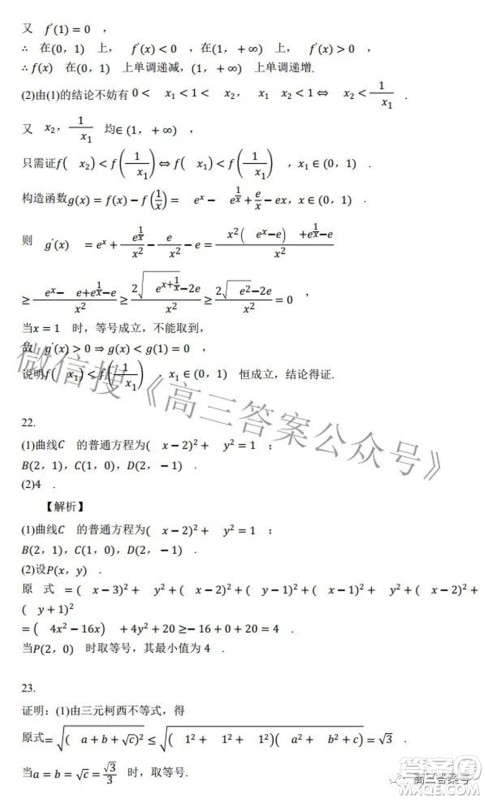 又 f′(1) = 0 ，
∴ 在(0，1) 上， f′(x) < 0 ，在(1，+∞) 上， f′(x) > 0 ，
∴ f(x) 在(0，1) 上单调递减，(1，+∞) 上单调递增.
(2)由(1)的结论不妨有 0 < x₁ < 1 < x₂， x₁x₂ < 1 ⇔ x₂ < 1/x₁ .
又 x₂，1/x₁ 均∈(1，+∞) ，
只需证f( x₂) < f(1/x₁) ⇔ f( x₁) < f(1/x₁) ，x₁ ∈ (0，1) .
构造函数g(x) = f(x) − f(1/x) = eˣ − e^(1/x) + e/x − ex，x ∈ (0，1) .
则 g′(x) = eˣ + e^(1/x)/x² − e/x² − e = (x²( eˣ−e) +e^(1/x)−e)/x²
≥ (eˣ− e+e^(1/x)−e)/x² ≥ (2√(e^(x+1/x))−2e)/x² ≥ (2√(e²)−2e)/x² = 0 ，
当x = 1 时，等号成立，不能取到，
故 g′(x) > 0 ⇒ g(x) < g(1) = 0 ，
说明f( x₁) < f(1/x₁) ，x₁ ∈ (0，1) 恒成立，结论得证.
22.
(1)曲线C 的普通方程为( x − 2)² + y² = 1 ；
B(2，1)，C(1，0)，D(2，−1) .
(2)4 .
【解析】
(1)曲线C 的普通方程为( x − 2)² + y² = 1 ；
B(2，1)，C(1，0)，D(2，−1) .
(2)设P(x，y) .
原 式 = ( x − 3)² + y² + ( x − 2)² + (y − 1)² + (x − 1)² + y² + (x − 2)² +
( y + 1)²
= ( 4x² − 16x) + 4y² + 20 ≥ −16 + 0 + 20 = 4 .
当P(2，0) 时取等号，其最小值为 4 .
23.
证明：(1)由三元柯西不等式，得
原式= √(( a + b + √c)²) ≤ √(( 1² + 1² + 1²)( a² + b² + c)) = √3 .
当a = b = √c = √3/3 时，取等号.
微信搜《高三答案公众号》
高三答案号